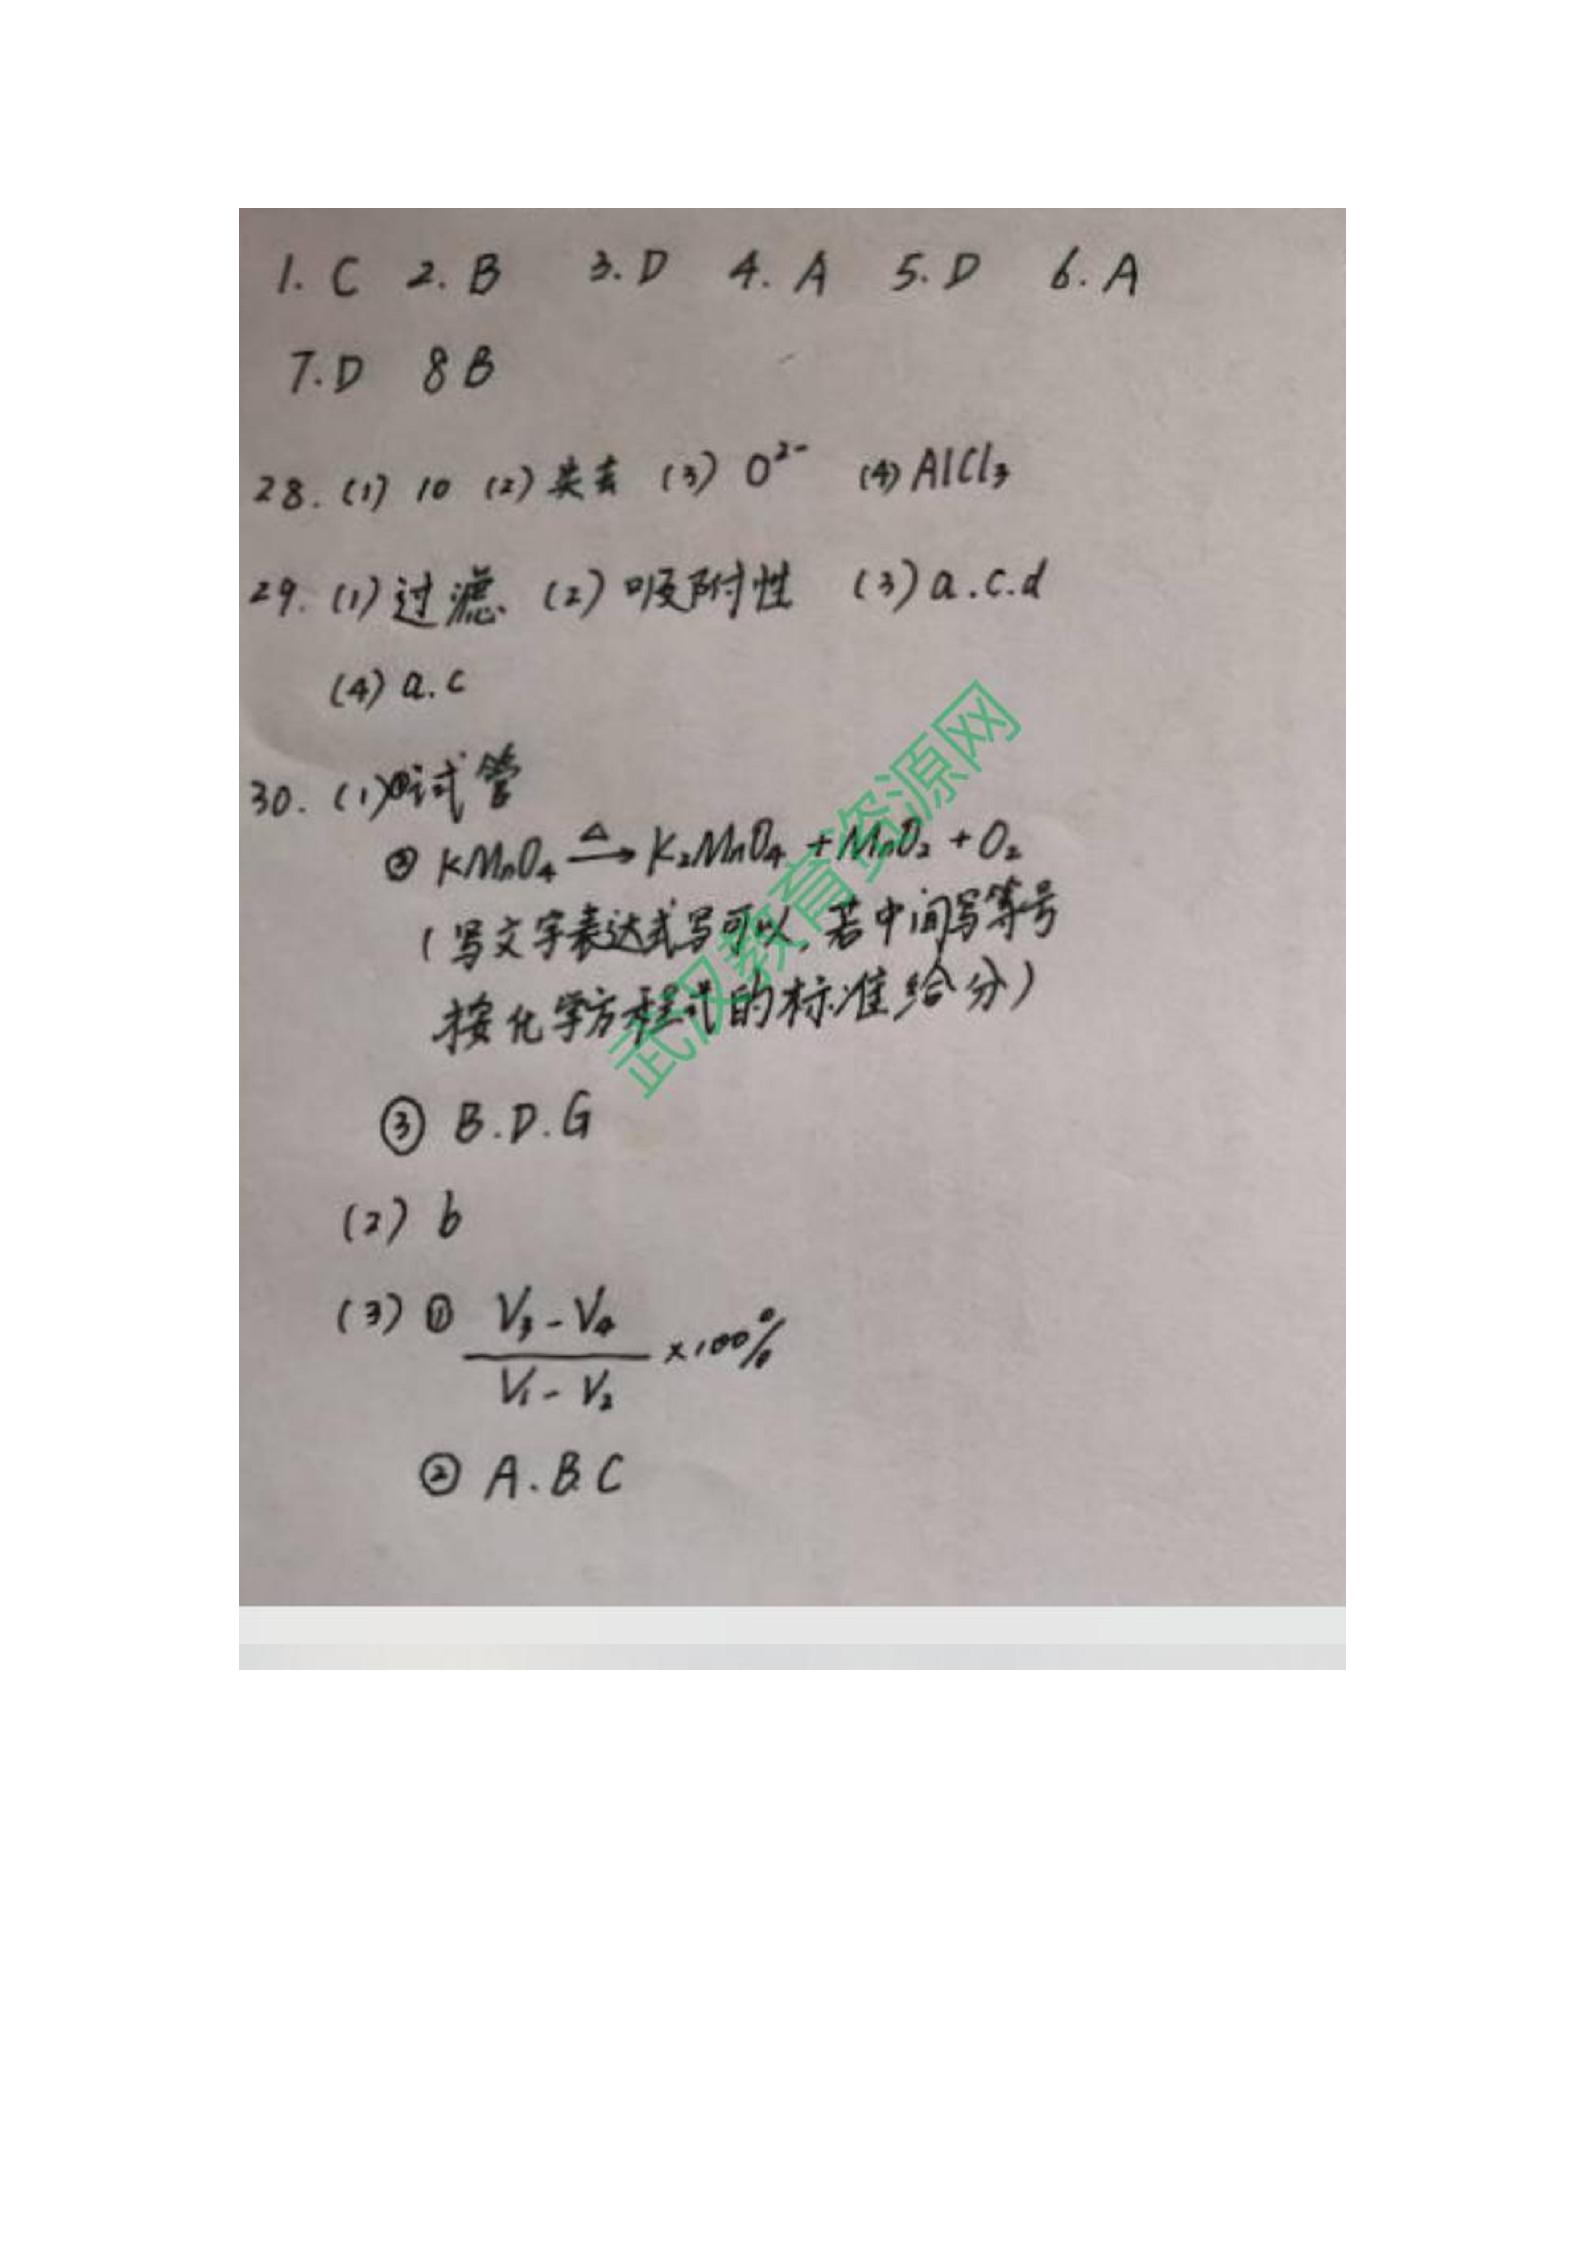 1. C 2. B 3. D 4. A 5. D 6. A
7. D 8 B
28. (1) 10 (2) 失去 (3) O²⁻ (4) AlCl₃
29. (1) 过滤 (2) 吸附性 (3) a.c.d
(4) a.c
30. (1)①试管
② KMnO₄ —△→ K₂MnO₄ + MnO₂ + O₂
(写文字表达式写可以,若中间写等号
按化学方程式的标准给分)
③ B.D.G
(2) b
(3) ① (V₃-V₄)/(V₁-V₂) ×100%
② A.B.C
武汉教育资源网